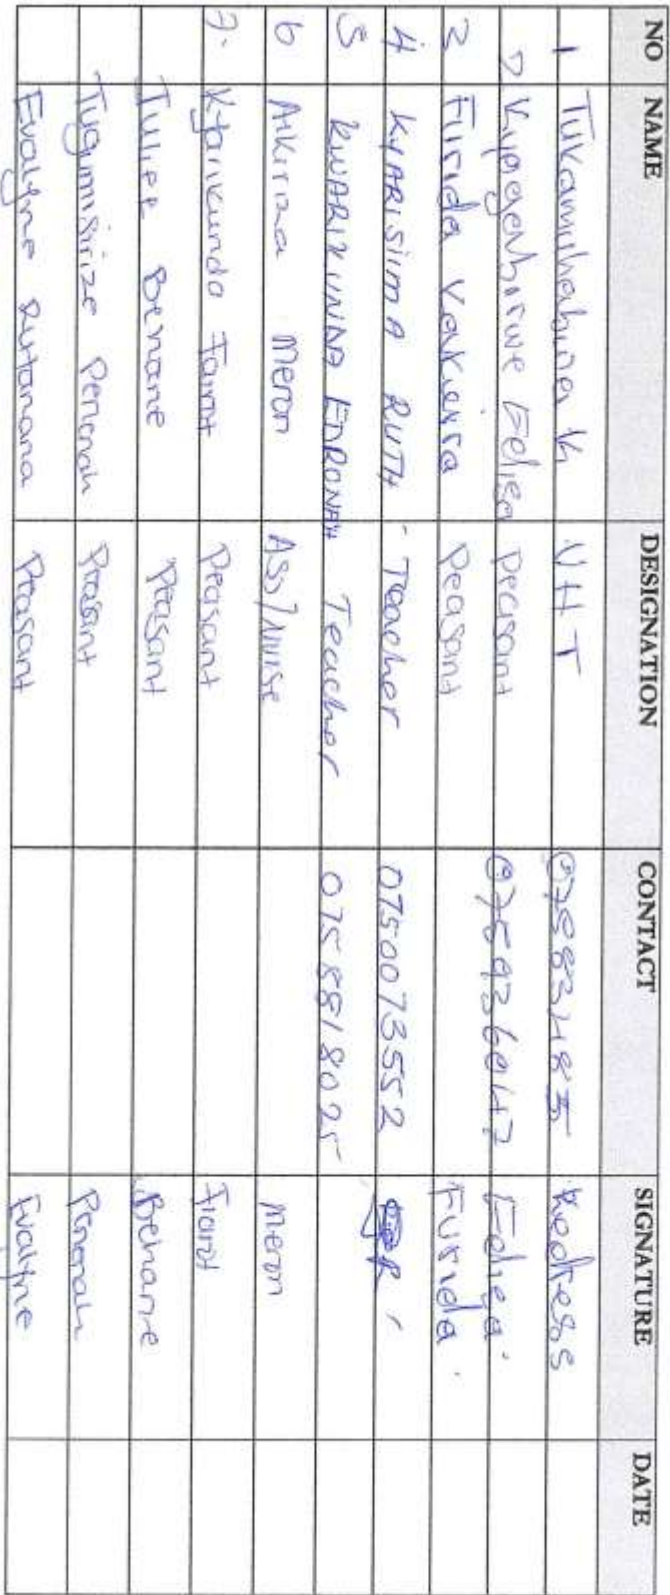 NO NAME DESIGNATION CONTACT SIGNATURE DATE
1 Tukamuhabwa K VHT Kedress
2 Kyogabirwe Edisa peasant 0759360147 Edisa
3 Flrida peasant Furida
4 KYARISIIMA RUTH Teacher 0750073552
5 KWARIKUNDA EDRONAH Teacher 0758818025
6 Ankiriza Meron Ass/Nurse meron
7. Kyarikunda Peasant
Benane Peasant Benane
Tugumisirize Penenah Peasant
Evalyne Rutanana Peasant Evalyne